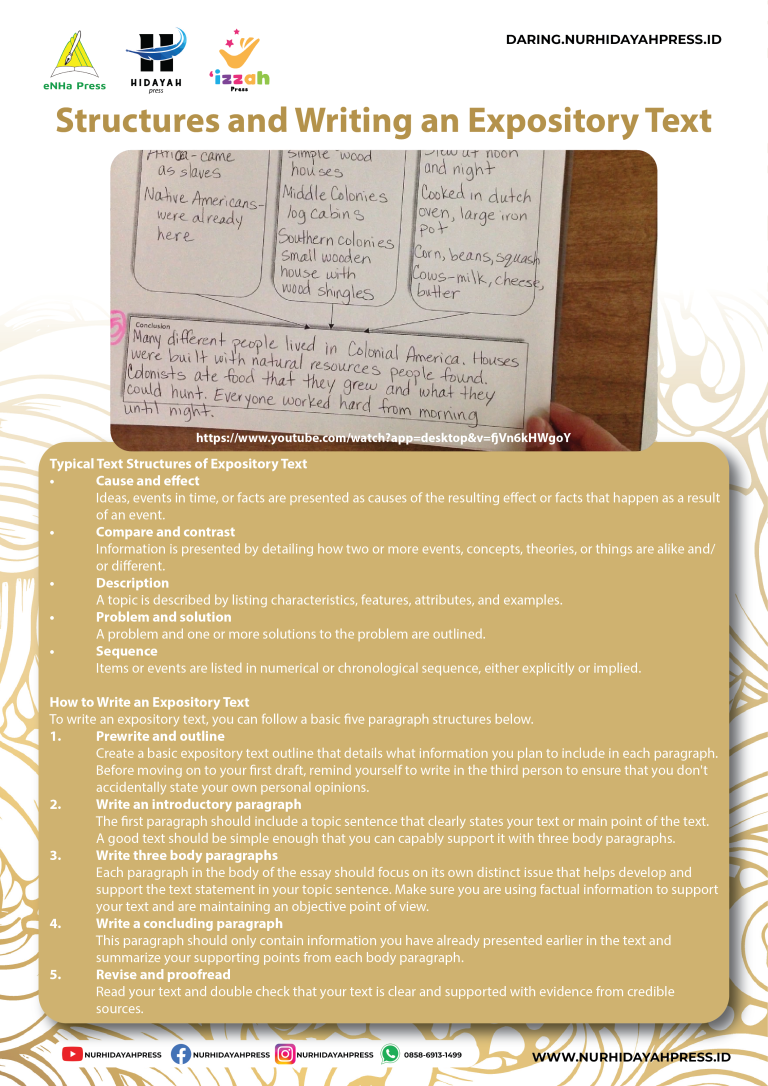 DARING.NURHIDAYAHPRESS.ID
eNHa Press
HIDAYAH
press
'izzah
Press
Structures and Writing an Expository Text
Africa - came
as slaves
Native Americans-
were already
here
simple wood
houses
Middle Colonies
log cabins
Southern colonies
small wooden
house with
wood shingles
at noon
and night
Cooked in dutch
oven, large iron
pot
Corn, beans, squash
Cows-milk, cheese,
butter
Conclusion
Many different people lived in Colonial America. Houses
were built with natural resources people found.
Colonists ate food that they grew and what they
could hunt. Everyone worked hard from morning
until night.
https://www.youtube.com/watch?app=desktop&v=fjVn6kHWgoY
Typical Text Structures of Expository Text
• Cause and effect
Ideas, events in time, or facts are presented as causes of the resulting effect or facts that happen as a result
of an event.
• Compare and contrast
Information is presented by detailing how two or more events, concepts, theories, or things are alike and/
or different.
• Description
A topic is described by listing characteristics, features, attributes, and examples.
• Problem and solution
A problem and one or more solutions to the problem are outlined.
• Sequence
Items or events are listed in numerical or chronological sequence, either explicitly or implied.
How to Write an Expository Text
To write an expository text, you can follow a basic five paragraph structures below.
1. Prewrite and outline
Create a basic expository text outline that details what information you plan to include in each paragraph.
Before moving on to your first draft, remind yourself to write in the third person to ensure that you don't
accidentally state your own personal opinions.
2. Write an introductory paragraph
The first paragraph should include a topic sentence that clearly states your text or main point of the text.
A good text should be simple enough that you can capably support it with three body paragraphs.
3. Write three body paragraphs
Each paragraph in the body of the essay should focus on its own distinct issue that helps develop and
support the text statement in your topic sentence. Make sure you are using factual information to support
your text and are maintaining an objective point of view.
4. Write a concluding paragraph
This paragraph should only contain information you have already presented earlier in the text and
summarize your supporting points from each body paragraph.
5. Revise and proofread
Read your text and double check that your text is clear and supported with evidence from credible
sources.
NURHIDAYAHPRESS
NURHIDAYAHPRESS
NURHIDAYAHPRESS
0858-6913-1499
WWW.NURHIDAYAHPRESS.ID